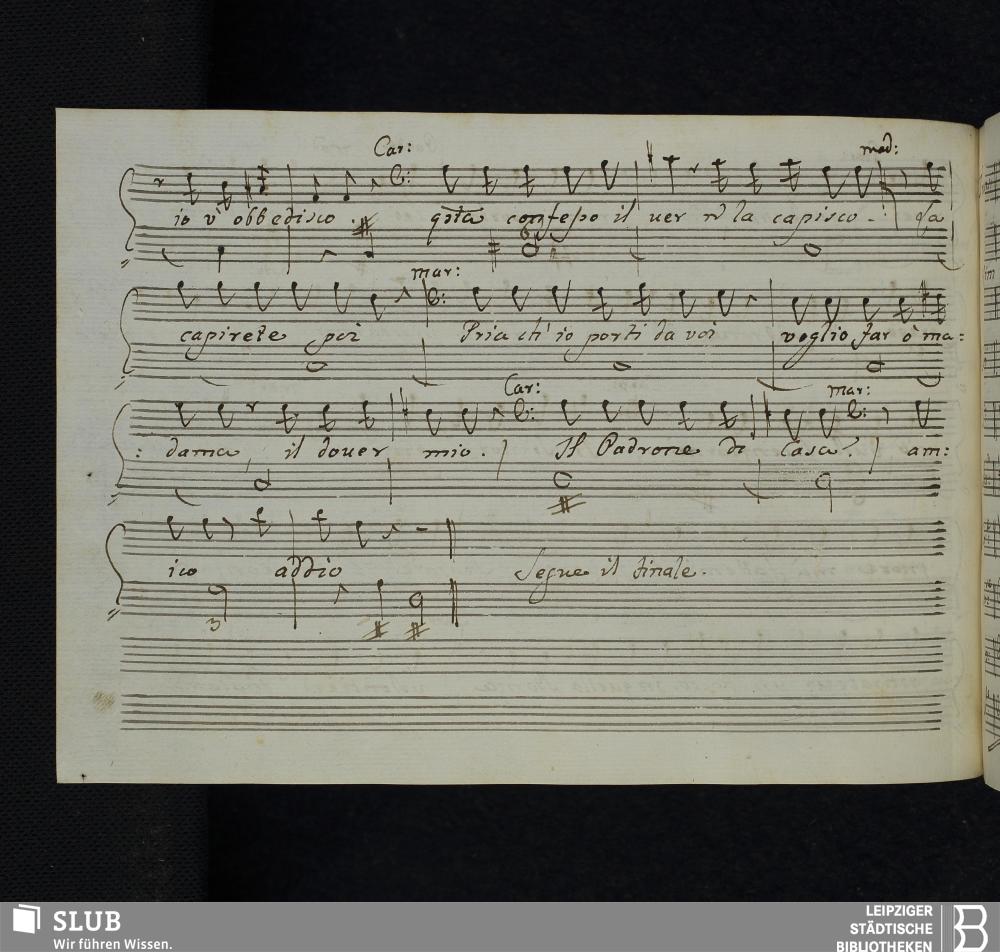 Car: mad:
io v' obbedisco. qsta confesso il ver nō la capisco. La
mar:
capirete poi Pria ch' io porti da voi voglio far ò ma:
Car: mar:
: dama, il dover mio. Il Padrone di Casa? am:
ico addio Segue il finale.
3
SLUB
Wir führen Wissen.
LEIPZIGER
STÄDTISCHE
BIBLIOTHEKEN